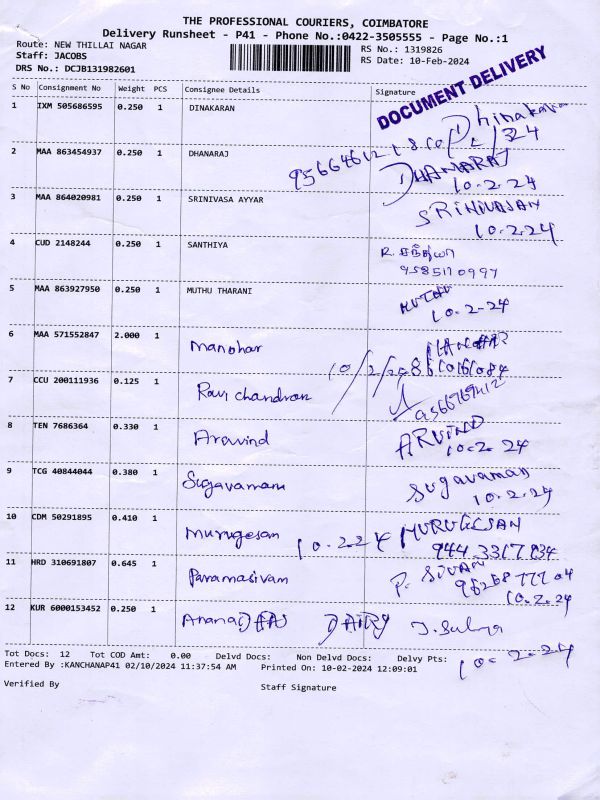 THE PROFESSIONAL COURIERS, COIMBATORE
Delivery Runsheet - P41 - Phone No.:0422-3505555 - Page No.:1
Route: NEW THILLAI NAGAR
RS No.: 1319826
Staff: JACOBS
RS Date: 10-Feb-2024
DRS No.: DCJB131982601
DOCUMENT DELIVERY
S No Consignment No Weight PCS Consignee Details Signature
1 IXM 505686595 0.250 1 DINAKARAN Dhinakaran
2 MAA 863454937 0.250 1 DHANARAJ DHANARAJ
10.2.24
3 MAA 864020981 0.250 1 SRINIVASA AYYAR SRINIVASAN
10.2.24
4 CUD 2148244 0.250 1 SANTHIYA R. சந்தியா
9585170997
5 MAA 863927950 0.250 1 MUTHU THARANI
10-2-24
6 MAA 571552847 2.000 1 Manohar
7 CCU 200111936 0.125 1 Ravi chandran
8 TEN 7686364 0.330 1 Aravind ARVIND
10.2.24
9 TCG 40844044 0.380 1 Sugavamam Sugavaman
10.2.24
10 CDM 50291895 0.410 1 Murugesan 10.2.24 MURUGESAN
944 3317 834
11 HRD 310691807 0.645 1 Paramasivam P. SIVAN
10.2.24
12 KUR 6000153452 0.250 1 DAIRY
10.2.24
Tot Docs: 12 Tot COD Amt: 0.00 Delvd Docs: Non Delvd Docs: Delvy Pts:
Entered By :KANCHANAP41 02/10/2024 11:37:54 AM Printed On: 10-02-2024 12:09:01
Verified By Staff Signature